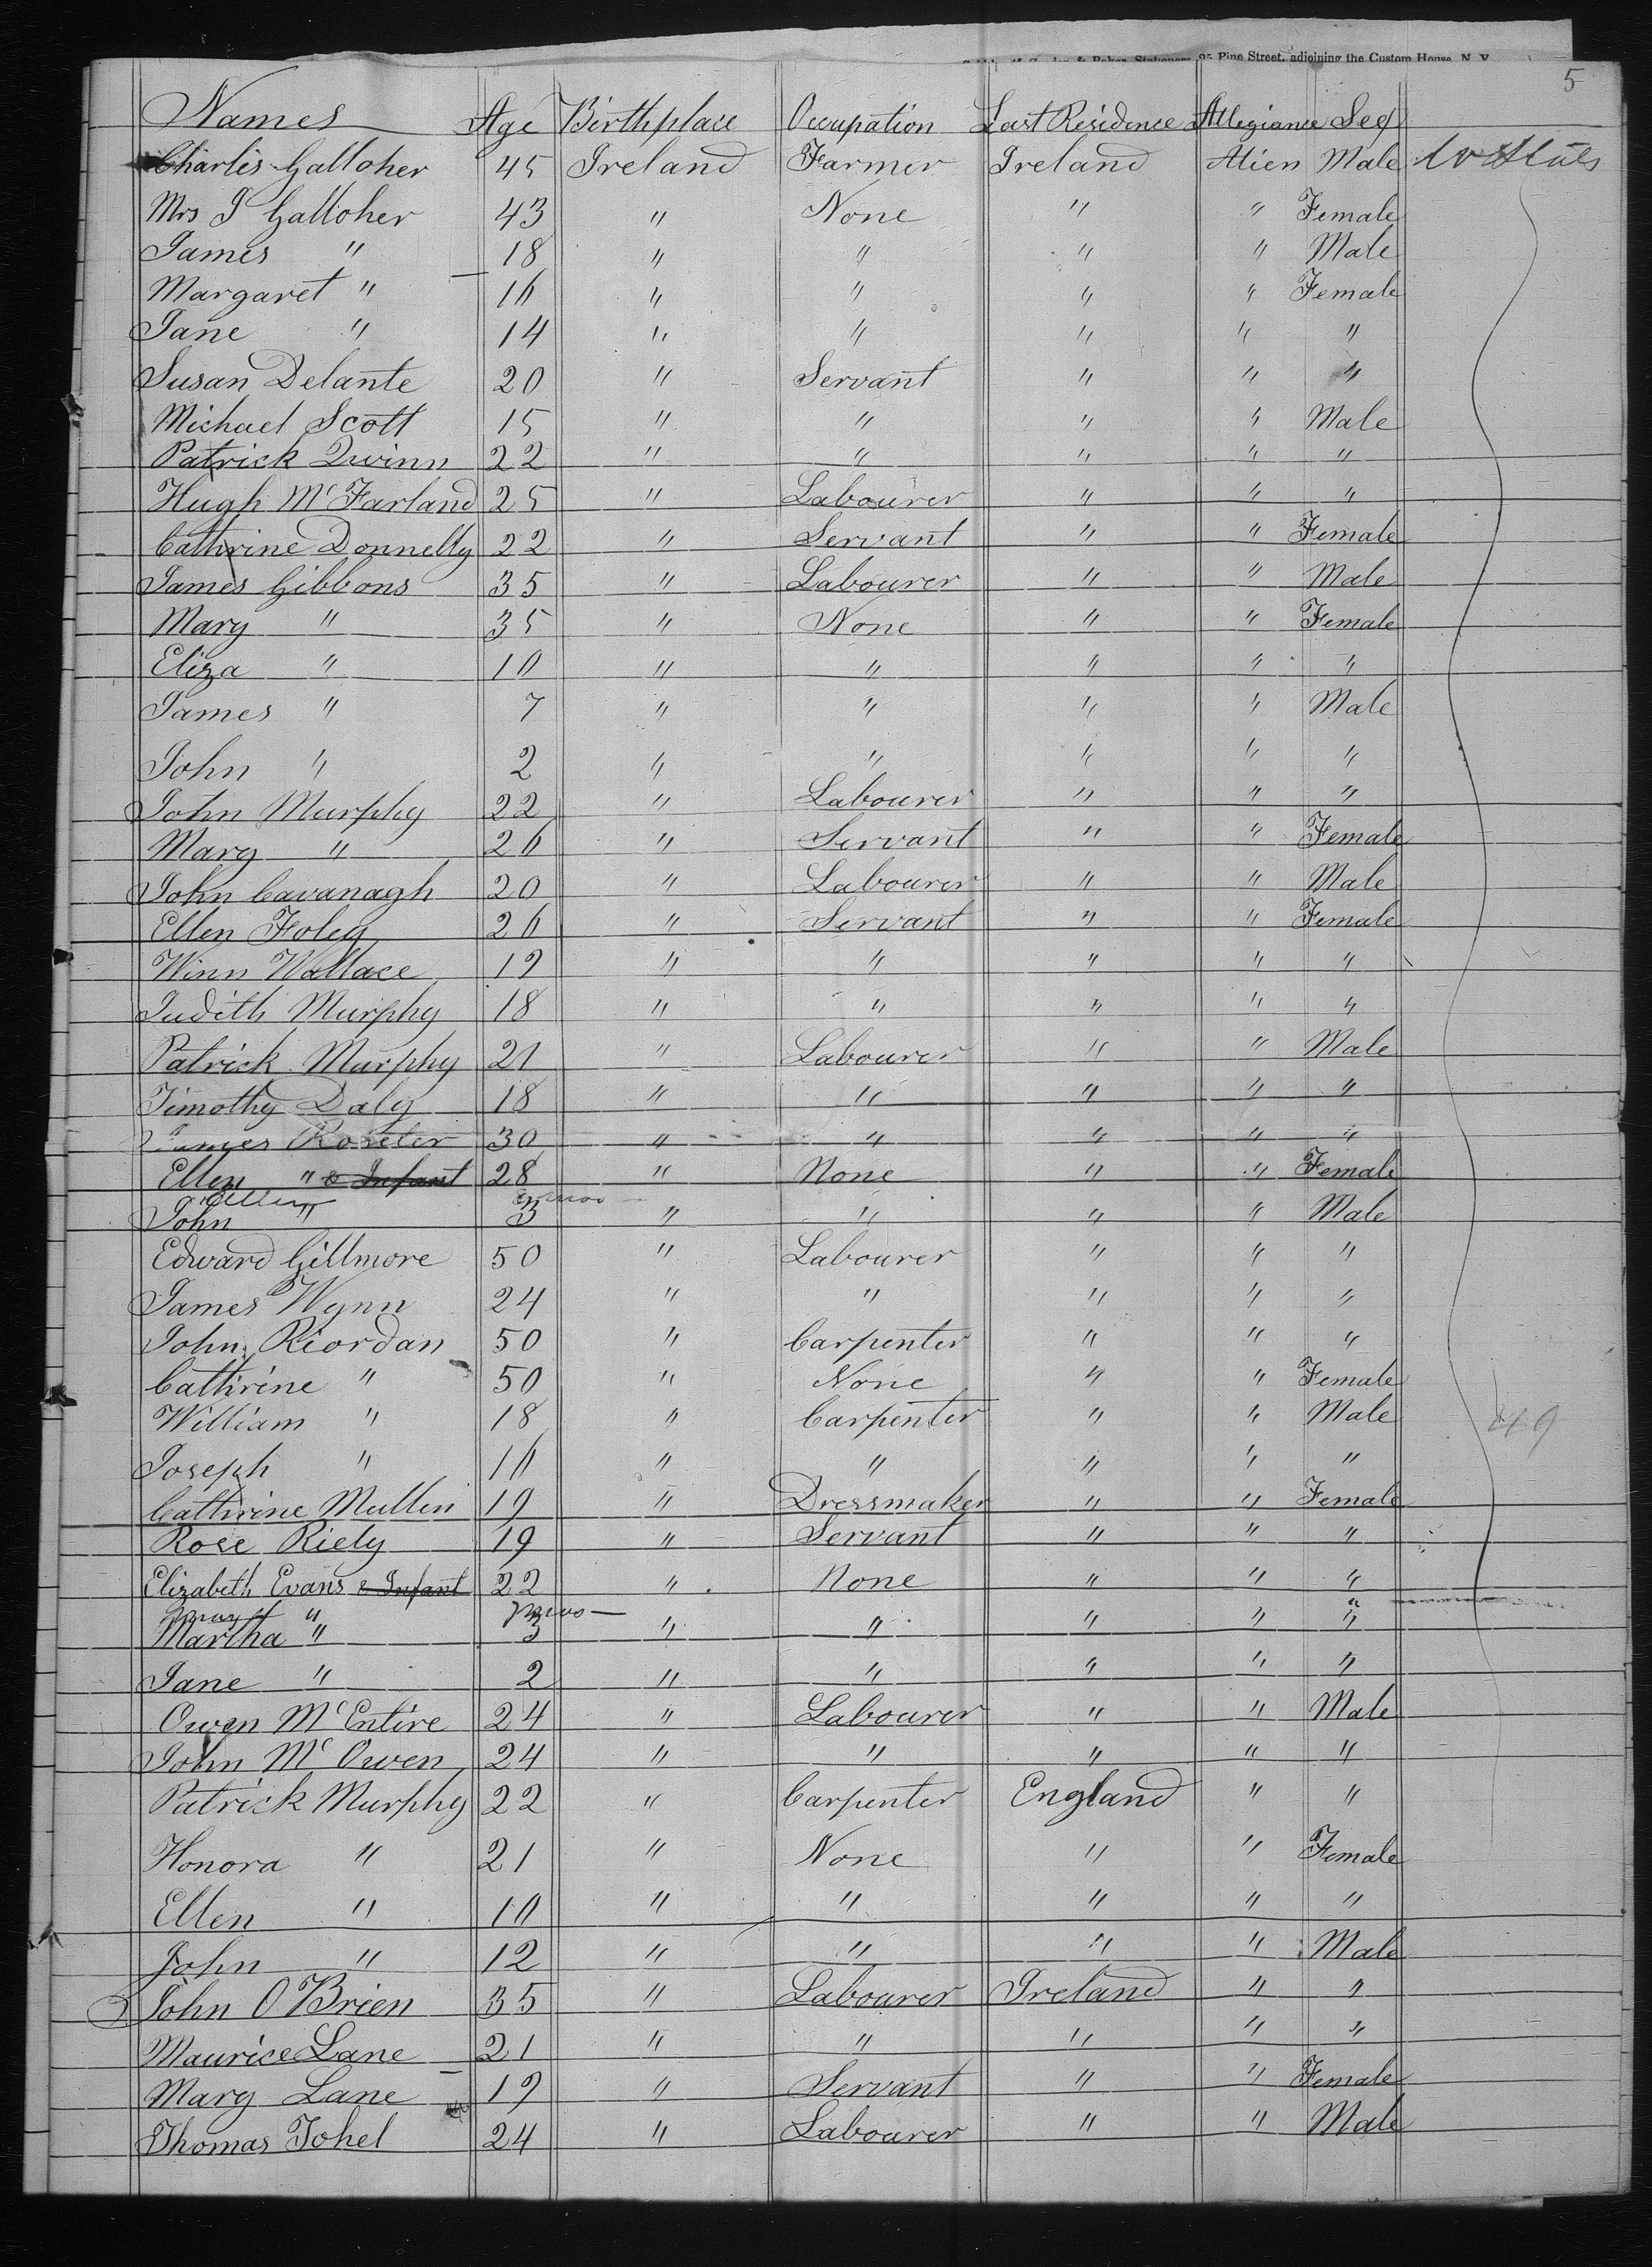 & Baker, Stationers, 95 Pine Street, adjoining the Custom House, N. Y.
5
Names Age Birthplace Occupation Last Residence Allegiance Sex
Charles Galloher 45 Ireland Farmer Ireland Alien Male U States
Mrs J Galloher 43 " None " " Female
James " 18 " " " " Male
Margaret " 16 " " " " Female
Jane " 14 " " " " "
Susan Delante 20 " Servant " " "
Michael Scott 15 " " " " Male
Patrick Quinn 22 " " " " "
Hugh McFarland 25 " Labourer " " "
Cathrine Donnelly 22 " Servant " " Female
James Gibbons 35 " Labourer " " Male
Mary " 35 " None " " Female
Eliza " 10 " " " " "
James " 7 " " " " Male
John " 2 " " " " "
John Murphy 22 " Labourer " " "
Mary " 26 " Servant " " Female
John Cavanagh 20 " Labourer " " Male
Ellen Foley 26 " Servant " " Female
Winn Wallace 19 " " " " "
Judith Murphy 18 " " " " "
Patrick Murphy 21 " Labourer " " Male
Timothy Daly 18 " " " " "
James Roseter 30 " " " " "
Ellen " & Infant 28 " None " " Female
Ellen " mos
John " 3 " " " " Male
Edward Gillmore 50 " Labourer " " "
James Wynn 24 " " " " "
John Riordan 50 " Carpenter " " "
Cathrine " 50 " None " " Female
William " 18 " Carpenter " " Male 49
Joseph " 16 " " " " "
Cathrine Mullin 19 " Dressmaker " " Female
Rose Riely 19 " Servant " " "
Elizabeth Evans & Infant 22 " None " " "
" mos "
Martha " 3 " " " " "
Jane " 2 " " " " "
Owen McEntire 24 " Labourer " " Male
John McOwen 24 " " " " "
Patrick Murphy 22 " Carpenter England " "
Honora " 21 " None " " Female
Ellen " 10 " " " " "
John " 12 " " " " Male
John O'Brien 35 " Labourer Ireland " "
Maurice Lane 21 " " " " "
Mary Lane 19 " Servant " " Female
Thomas Tohel 24 " Labourer " " Male